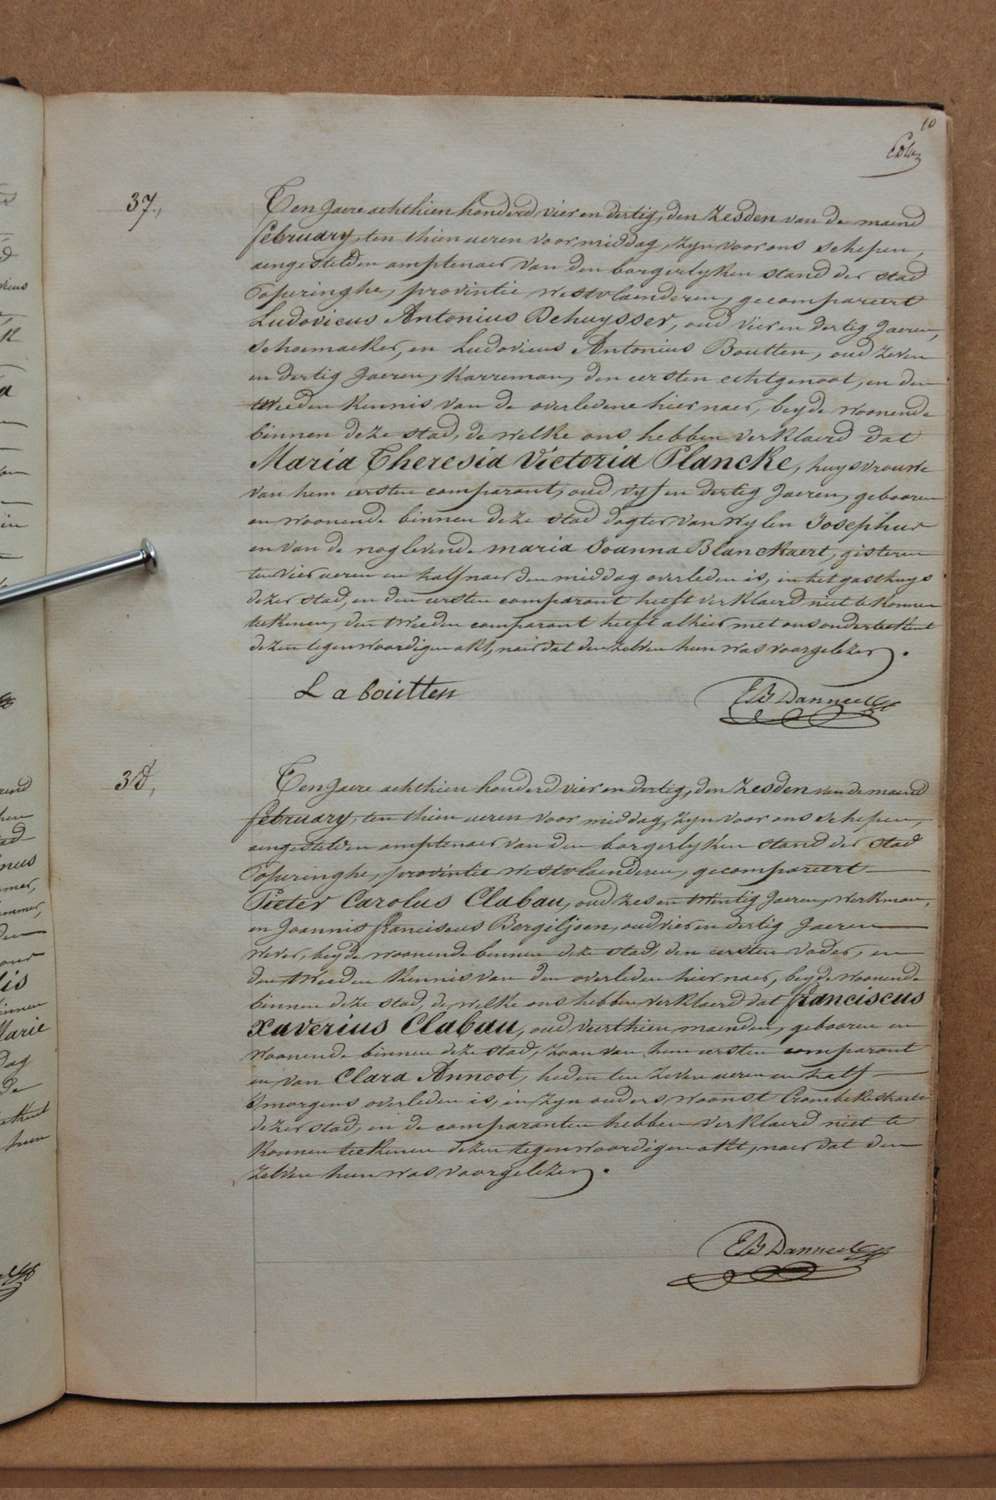 10
37.,
Ten Jaere achthien honderd vier en dertig, den Zesden van de maend
february, ten thien ueren voor middag, Zyn voor ons schepen,
aengestelden amptenaer van den borgerlyken stand der stad
Poperinghe, provintie westvlaenderen, gecompareert
Ludovicus Antonius Dehuysser, oud vier en dertig Jaeren,
Schoemaeker, en Ludovicus Antonius Boutten, oud Zeven
en dertig Jaeren, Karreman, den eersten echtgenoot, en den
tweeden Kennis van de overledene hier naer, beyde woonende
binnen deze stad, de welke ons hebben verklaerd dat
Maria Theresia Victoria Plancke, huysvrouwe
van hem eersten comparant, oud vyf en dertig Jaeren, gebooren
en woonende binnen deze stad dogter van wylen Josephus
en van de noglevende maria Joanna Blanckaert, gisteren
ten vier ueren en half naer den middag overleden is, in het gasthuys
dezer stad, en den eersten comparant heeft verklaerd niet te konnen
teekenen, den tweeden comparant heeft alhier met ons onderteekent
dezen tegenwoordigen akt, naer dat den zelven hun was voorgelezen.
L a boutten
EB Danneel
38,
Ten Jaere achthien honderd vier en dertig, den Zesden van de maend
february, ten thien ueren voor middag, Zyn voor ons schepen,
aengestelden amptenaer van den borgerlyken stand der stad
Poperinghe, provintie westvlaenderen, gecompareert
Pieter Carolus Clabau, oud zes en twintig Jaeren, werkman,
en Joannis franciscus Bergiljoen, oud vier en dertig Jaeren
wever, beyde woonende binnen deze stad, den eersten vader, en
den tweeden Kennis van den overleden hier naer, beyde woonende
binnen deze stad, de welke ons hebben verklaerd dat franciscus
xaverius Clabau, oud veerthien maenden, gebooren en
woonende binnen deze stad, zoon van hem eersten comparant
en van Clara Annoot, heden ten zeven ueren en half
s'morgens overleden is, in zyn ouders woonst Crombekestraete
dezer stad, en de comparanten hebben verklaerd niet te
konnen teekenen dezen tegenwoordigen akt, naer dat den
zelven hun was voorgelezen.
EB Danneel